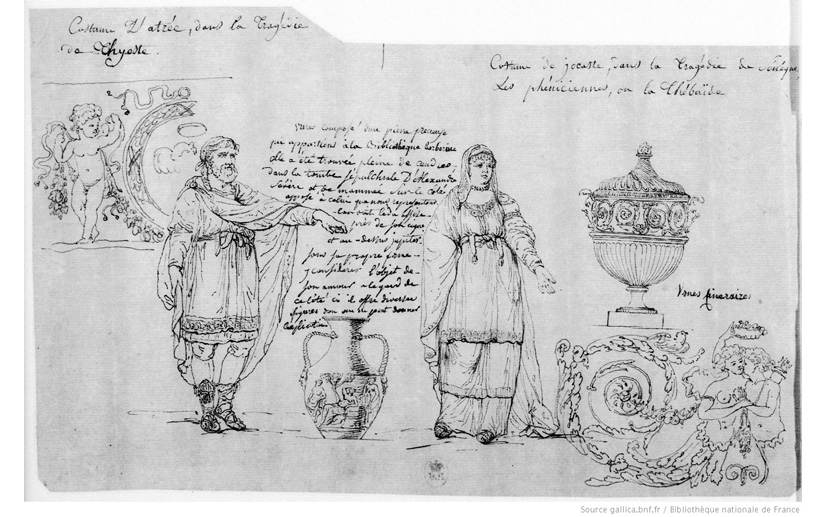 Costume D'atrée, dans la Tragédie
de Thyeste.
Costume de jocaste, dans la Tragédie de
Les phéniciennes, ou la thébaïde
vases composé d'une pierre
qui appartient à la Bibliothèque
elle a été trouvée pleine de cendres
dans la tombe sepulchrale D'Alexandre
Sévère et de mammée sur le côté
opposé à celui que nous représentons
près de son
et au-dessus jupiter
sous sa propre forme
considérer l'objet de
son amour a légard de
ce côté ci il offre diverses
figures don on ne peut donner
Vases funéraires
Source gallica.bnf.fr / Bibliothèque nationale de France